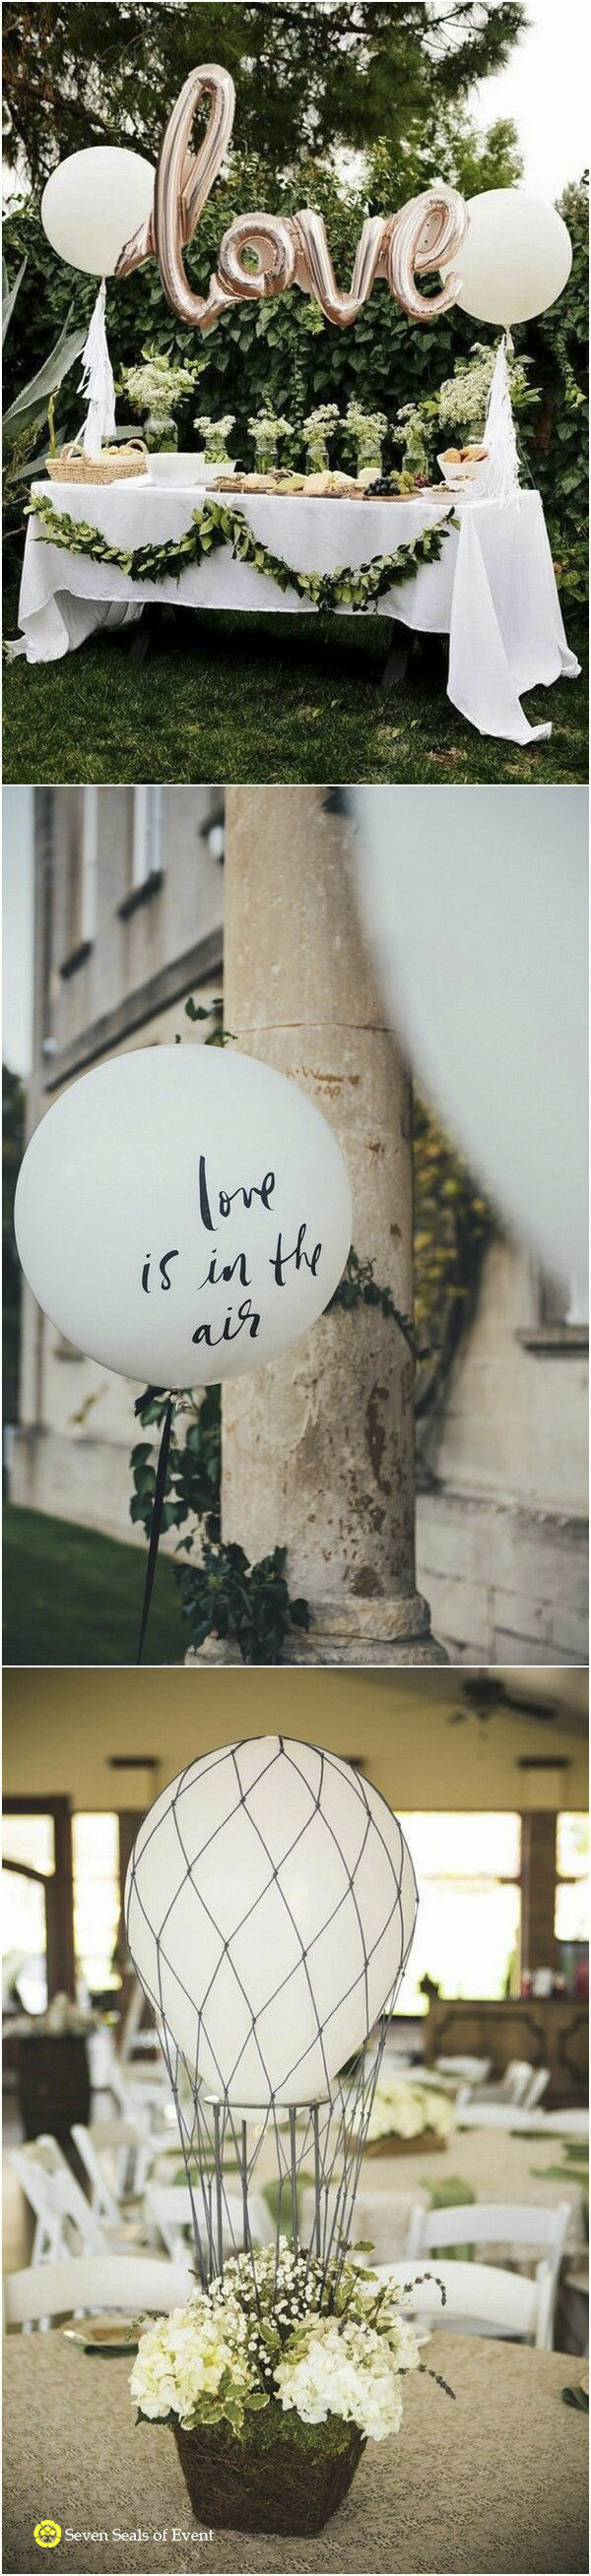 love
love
is in the
air
Seven Seals of Event